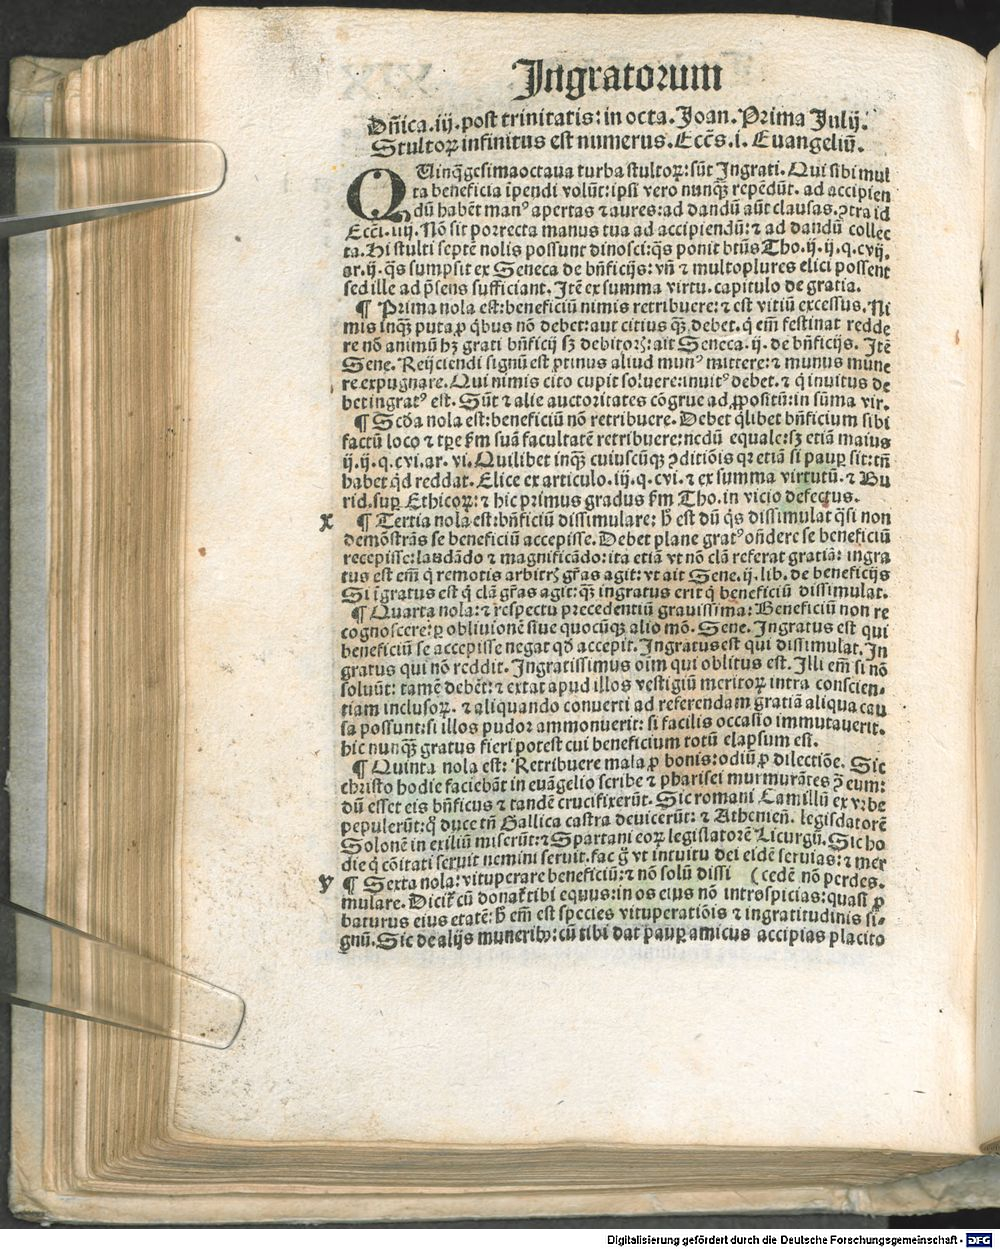 Ingratorum
Dñica.iij.post trinitatis: in octa. Joan. Prima Julij.
Stultoꝝ infinitus est numerus. Eccs̄.i. Euangeliū.
QUinq̈gesimaoctaua turba stultoꝝ: sūt Ingrati. Qui sibi mul
ta beneficia īpendi volūt: ipsi vero nunq̄ꝫ repēdūt. ad accipien
dū habēt manꝰ apertas ⁊ aures: ad dandū aūt clausas. ꝯtra id
Ecci. iiij. Nō sit porrecta manus tua ad accipiendū: ⁊ ad dandū collec
ta. Hi stulti septē nolis possunt dinosci: q̄s ponit btūs Tho. ij. ij. q. cvij.
ar. ij. q̄s sumpsit ex Seneca de bn̄ficijs: vn̄ ⁊ multoplures elici possent
sed ille ad p̄sens sufficiant. Itē ex summa virtu. capitulo de gratia.
¶ Prima nola est: beneficiū nimis retribuere: ⁊ est vitiū excessus. Ni
mis inq̄ꝫ puta ꝓ qbus nō debet: aut citius q̄ꝫ debet. q em̄ festinat redde
re nō animū hꝫ grati bn̄ficij sꝫ debitoꝝ: ait Seneca. ij. de bn̄ficijs. Itē
Sene. Reijciendi signū est ꝓtinus aliud munꝰ mittere: ⁊ munus mune
re expugnare. Qui nimis cito cupit soluere: inuitꝰ debet. ⁊ q inuitus de
bet ingratꝰ est. Sūt ⁊ alie auctoritates cōgrue ad ꝓpositū: in sūma vir.
¶ Scd̄a nola est: beneficiū nō retribuere. Debet qlibet bn̄ficium sibi
factū loco ⁊ tp̄e s̄m suā facultatē retribuere: nedū equale: sꝫ etiā maius
ij. ij. q. cvi. ar. vi. Quilibet inq̄ꝫ cuiuscūqꝫ ꝯditiōis qꝛ etiā si pauꝑ sit: tn̄
habet qd reddat. Elice ex articulo. iij. q. cvi. ⁊ ex summa virtutū. ⁊ Bu
rid. suꝑ Ethicoꝝ: ⁊ hic primus gradus s̄m Tho. in vicio defectus.
x ¶ Tertia nola est: bn̄ficiū dissimulare: h̄ est dū q̄s dissimulat q̈si non
demōstrās se beneficiū accepisse. Debet plane gratꝰ on̄dere se beneficiū
recepisse: laudādo ⁊ magnificādo: ita etiā vt nō clā referat gratiā: ingra
tus est em̄ q remotis arbitrꝭ gr̄as agit: vt ait Sene. ij. lib. de beneficijs
Si īgratus est q clā gr̄as agit: q̄ꝫ ingratus erit q beneficiū dissimulat.
¶ Quarta nola: ⁊ respectu precedentiū grauissima: Beneficiū non re
cognoscere: ꝑ obliuionē siue quocūqꝫ alio mō. Sene. Ingratus est qui
beneficiū se accepisse negat qd̄ accepit. Ingratus est qui dissimulat. In
gratus qui nō reddit. Ingratissimus oīm qui oblitus est. Illi em̄ si nō
soluūt: tamē debēt: ⁊ extat apud illos vestigiū meritoꝝ intra conscien-
tiam inclusoꝝ. ⁊ aliquando conuerti ad referendam gratiā aliqua cau
sa possunt: si illos pudor ammonuerit: si facilis occasio immutauerit.
hic nunq̄ꝫ gratus fieri potest cui beneficium totū elapsum est.
¶ Quinta nola est: Retribuere mala ꝓ bonis: odiū ꝓ dilectiōe. Sic
christo hodie faciebāt in euāgelio scribe ⁊ pharisei murmurātes ꝯ eum:
dū esset eis bn̄ficus ⁊ tandē crucifixerūt. Sic romani Camillū ex vrbe
pepulerūt: qͦ duce tn̄ Gallica castra deuicerūt: ⁊ Athenien̄. legisdatorē
Solonē in exiliū miserūt: ⁊ Spartani eoꝝ legislatorē Licurgū. Sic ho
die q cōitati seruit nemini seruit. fac g̈ vt intuitu dei eidē seruias: ⁊ mer
y ¶ Sexta nola: vituperare beneficiū: ⁊ nō solū dissi (cedē nō perdes.
mulare. Dicit̄ cū donat̄ tibi equus: in os eius nō introspicias: quasi ꝓ
baturus eius etatē: h̄ em̄ est species vituperatiōis ⁊ ingratitudinis si-
gnū. Sic de alijs muneribꝫ: cū tibi dat pauꝑ amicus accipias placito
Digitalisierung gefördert durch die Deutsche Forschungsgemeinschaft - DFG